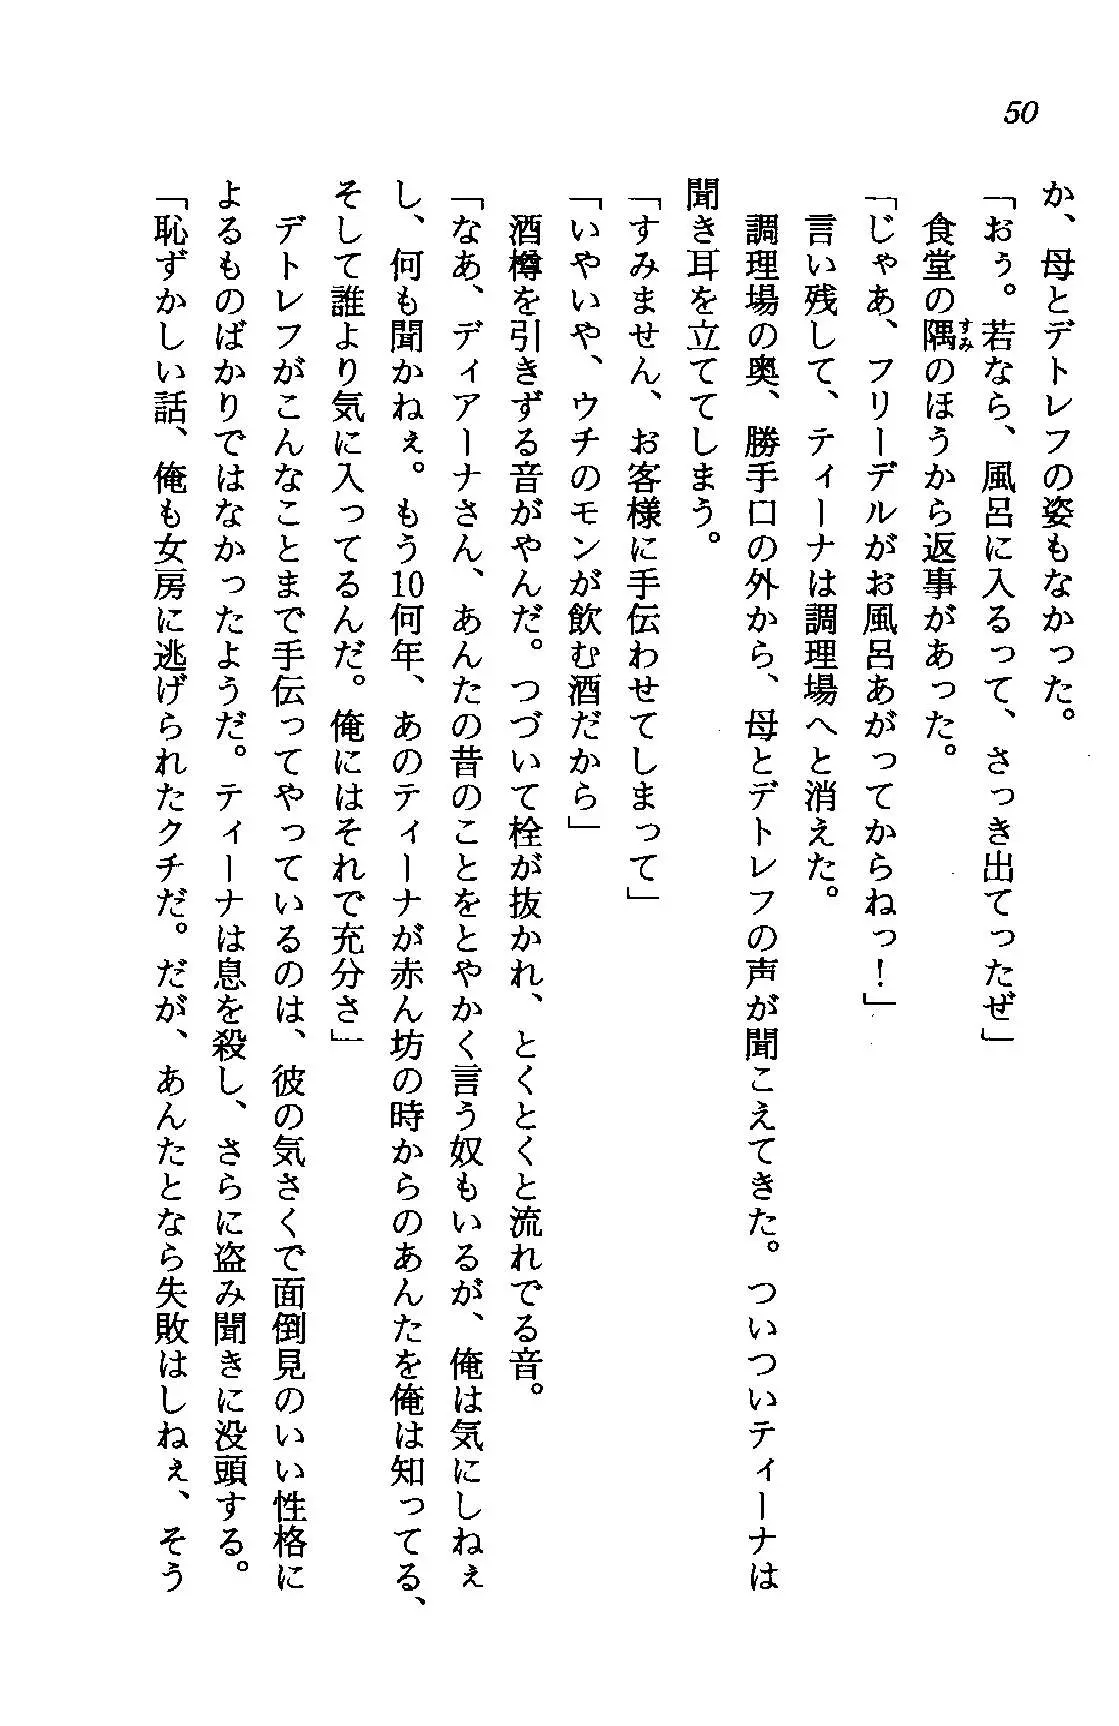 50
か、母とデトレフの姿もなかった。
「おぅ。若なら、風呂に入るって、さっき出てったぜ」
食堂の隅のほうから返事があった。
「じゃあ、フリーデルがお風呂あがってからねっ！」
言い残して、ティーナは調理場へと消えた。
調理場の奥、勝手口の外から、母とデトレフの声が聞こえてきた。ついついティーナは
聞き耳を立ててしまう。
「すみません、お客様に手伝わせてしまって」
「いやいや、ウチのモンが飲む酒だから」
酒樽を引きずる音がやんだ。つづいて栓が抜かれ、とくとくと流れでる音。
「なあ、ディアーナさん、あんたの昔のことをとやかく言う奴もいるが、俺は気にしねぇ
し、何も聞かねぇ。もう10何年、あのティーナが赤ん坊の時からのあんたを俺は知ってる、
そして誰より気に入ってるんだ。俺にはそれで充分さ」
デトレフがこんなことまで手伝ってやっているのは、彼の気さくで面倒見のいい性格に
よるものばかりではなかったようだ。ティーナは息を殺し、さらに盗み聞きに没頭する。
「恥ずかしい話、俺も女房に逃げられたクチだ。だが、あんたとなら失敗はしねぇ、そう